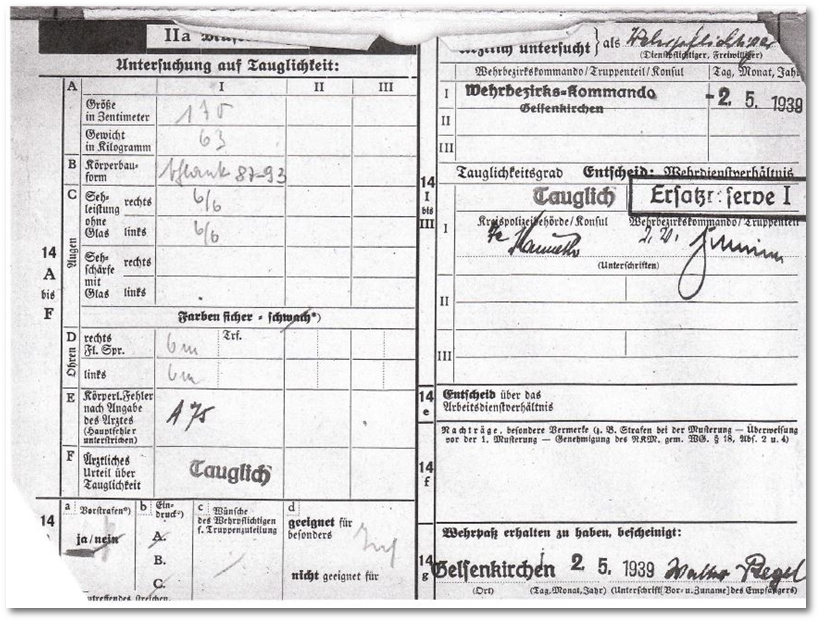 IIa
Untersuchung auf Tauglichkeit:
A I II III
Größe
in Zentimeter 170
Gewicht
in Kilogramm 63
B Körperbau-
form schlank 87-93
C Augen
Seh-
leistung
ohne
Glas
rechts 6/6
links 6/6
Seh-
schärfe
mit
Glas
rechts
links
14
A
bis
F
Farben sicher - schwach*)
D Ohren
rechts
Fl. Spr. 6m Trf.
links 6m
E Körperl. Fehler
nach Angabe
des Arztes
(Hauptfehler
unterstrichen)
A 75
F Ärztliches
Urteil über
Tauglichkeit
Tauglich
14
a Vorstrafen*)
ja/nein
b Ein-
druck*)
A.
B.
C.
c Wünsche
des Wehrpflichtigen
f. Truppenzuteilung
d
geeignet für
besonders Inf
nicht geeignet für
Zutreffendes streichen.
Ärztlich untersucht } als Wehrpflichtiger
(Dienstpflichtiger, Freiwilliger)
Wehrbezirkskommando/Truppenteil/Konsul Tag, Monat, Jahr
I Wehrbezirks-Kommando - 2. 5. 1939
Gelsenkirchen
II
III
Tauglichkeitsgrad Entscheid: Wehrdienstverhältnis
14
I
bis
III
Tauglich Ersatzreserve I
Kreispolizeibehörde/Konsul Wehrbezirkskommando/Truppenteil
I
(Unterschriften)
II
III
14
e
Entscheid über das
Arbeitsdienstverhältnis
14
f
Nachträge, besondere Vermerke (z. B. Strafen bei der Musterung — Überweisung
vor der 1. Musterung — Genehmigung des RKM. gem. WG. § 18, Abs. 2 u. 4)
14
g
Wehrpaß erhalten zu haben, bescheinigt:
Gelsenkirchen 2. 5. 1939 Walter Regel
(Ort) (Tag, Monat, Jahr) (Unterschrift [Vor- u. Zuname] des Empfängers)